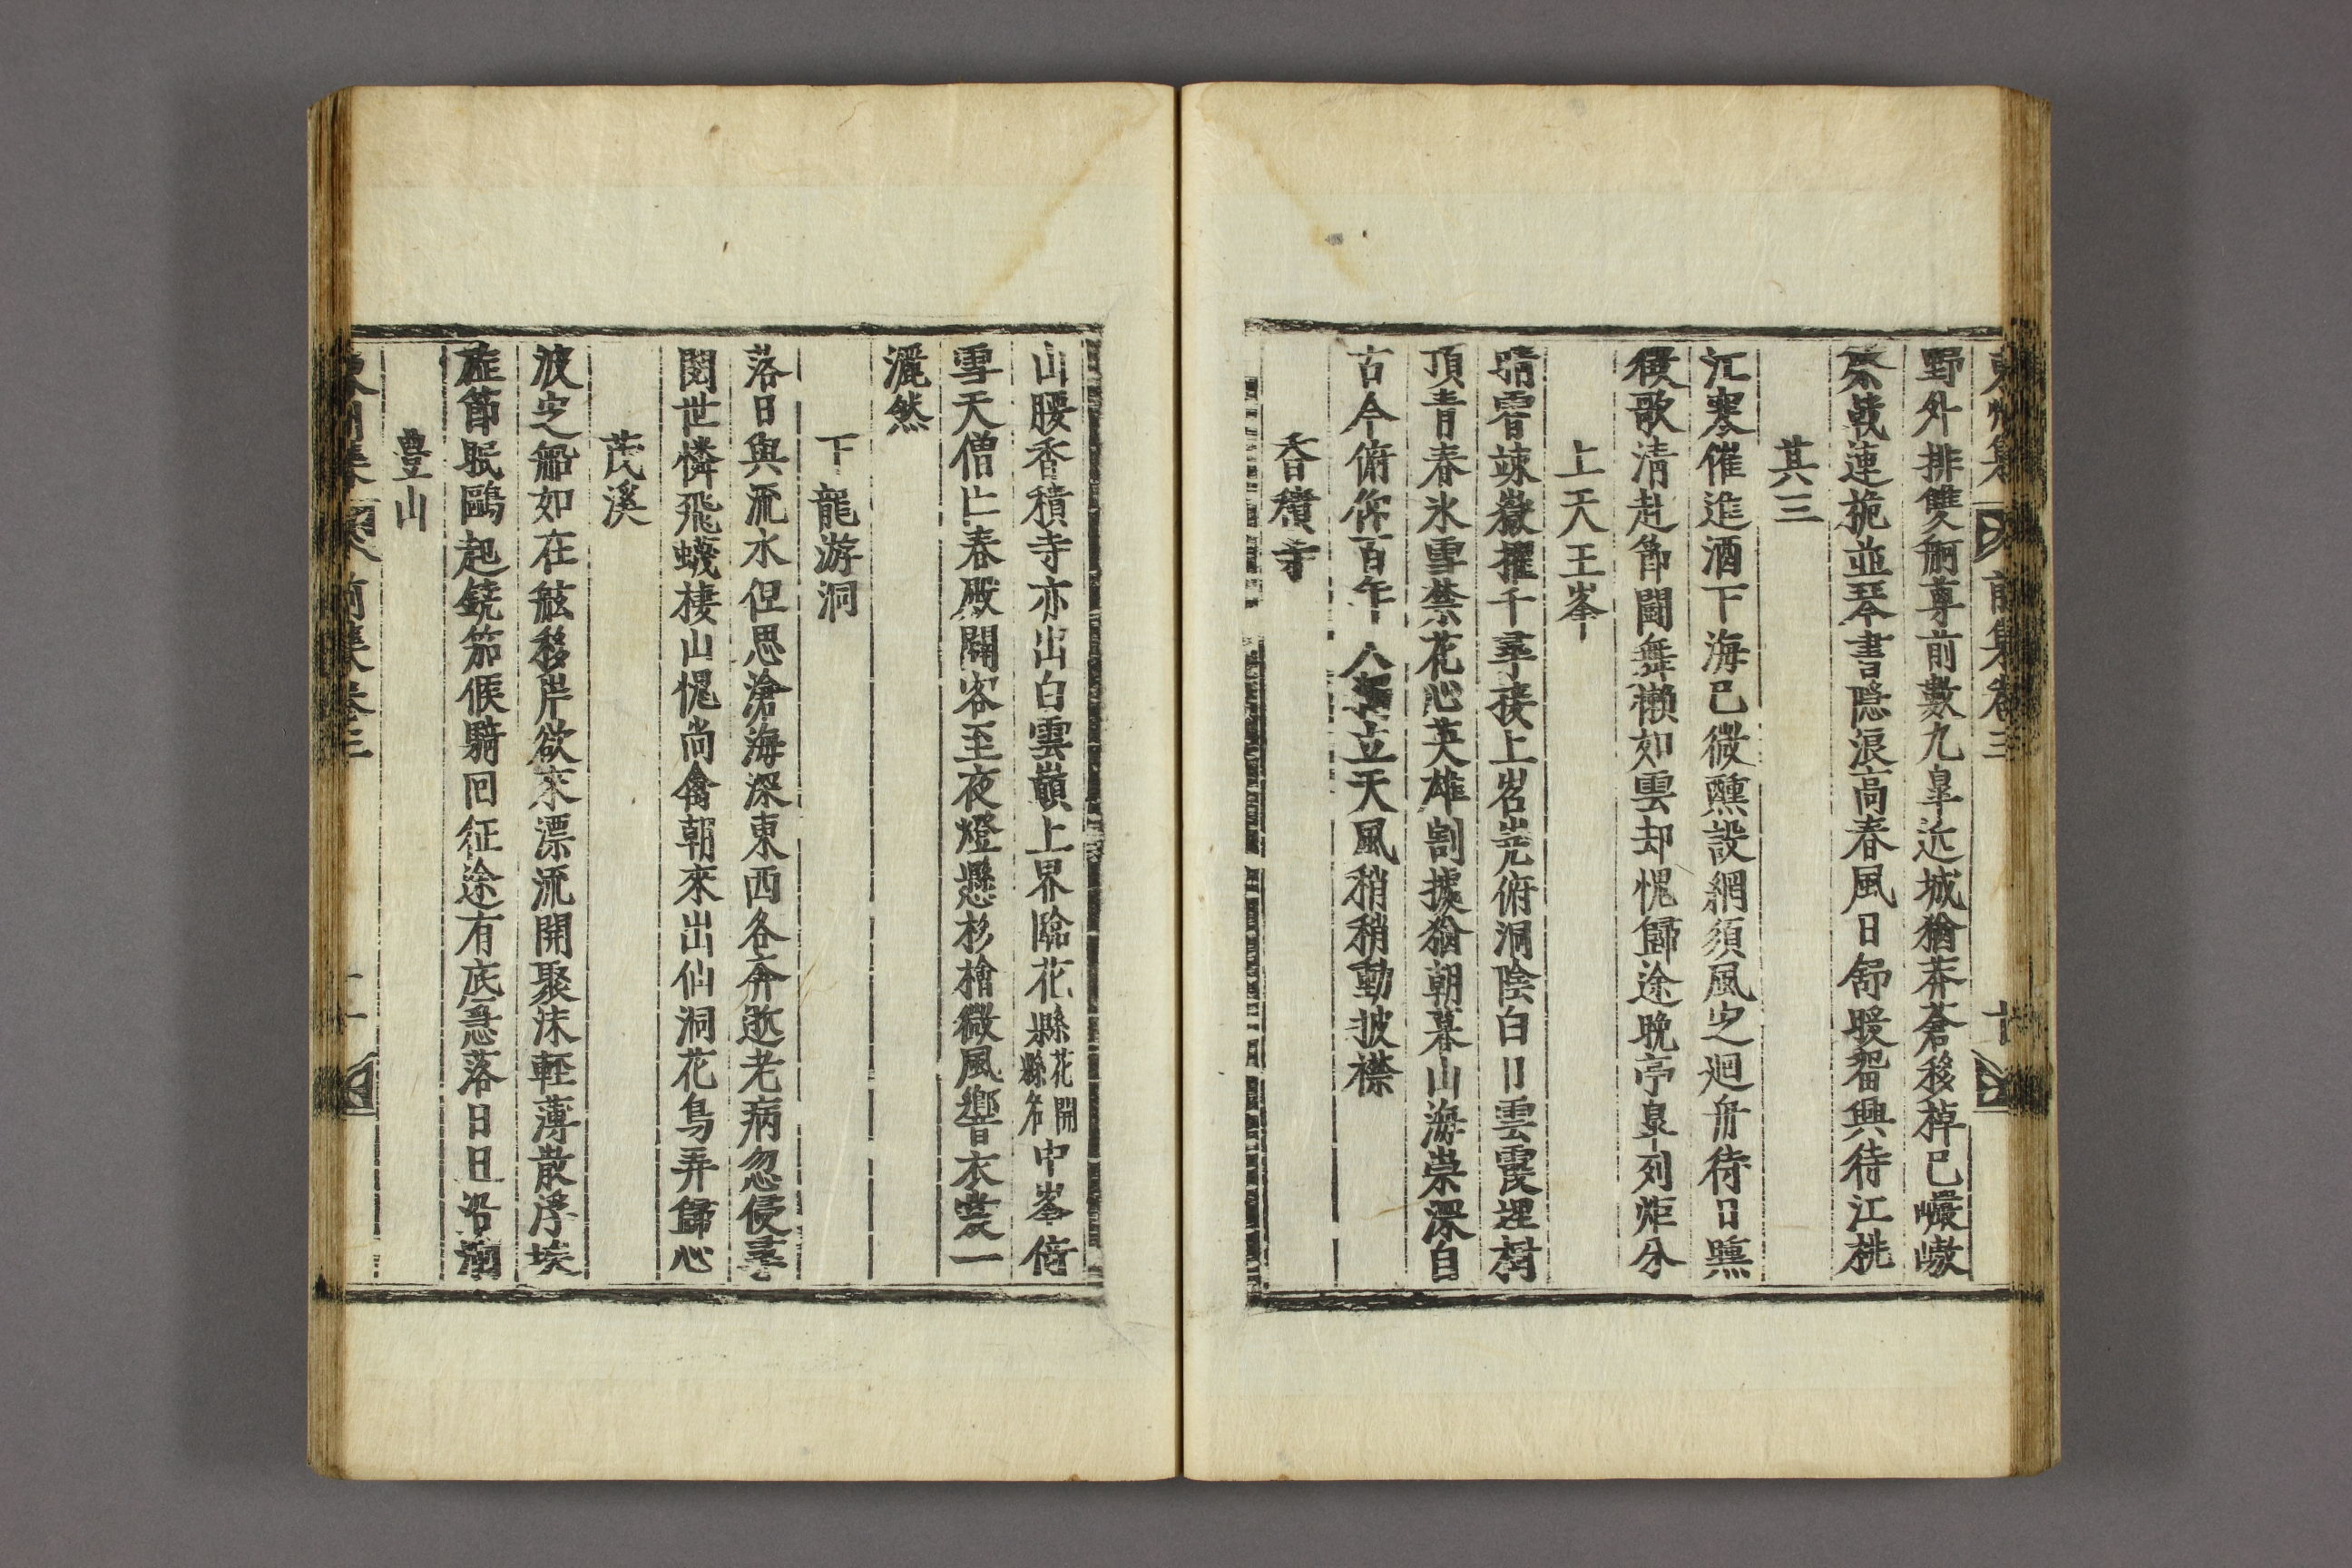 野外排雙舸尊前數九皐近城猶莽蒼移棹已巉嶔
棨戟連桅並琴書隠浪高春風日舒暖留興待江桃
其三
江寒催進酒下海已微醺設網須風定迴舟待日曛
穠歌清赴節闘舞懶如雲却愧歸途晩亭皐列炬分
上天王峯
晴霄竦嶽擢千尋接上岩嶤俯洞陰白日雲霞埋樹
頂青春氷雪禁花心英雄割據猶朝暮山海崇深自
古今俯仰百年人立天風稍稍動披襟
香積寺
山腰香積寺亦出白雲巔上界臨花縣花開縣名中峯倚
雪天僧亡春殿閉客至夜燈懸杉檜微風響衣裳一
灑然
下龍游洞
落日與流水但思滄海深東西各奔逝老病忽侵尋
閱世憐飛蠛棲山愧尚禽朝來出仙洞花鳥弄歸心
茂溪
波定船如在舷移岸欲來漂流開聚沫輕薄散浮埃
旌節眠鷗起鐃笳候騎回征途有底急落日且沿洄
豊山
前集卷三